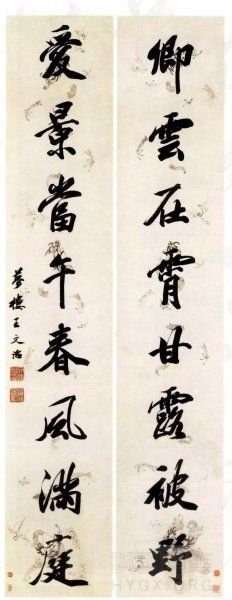 卿雲在霄甘露被野
愛景當午春風滿庭
夢樓王文治
HYGX.ORG